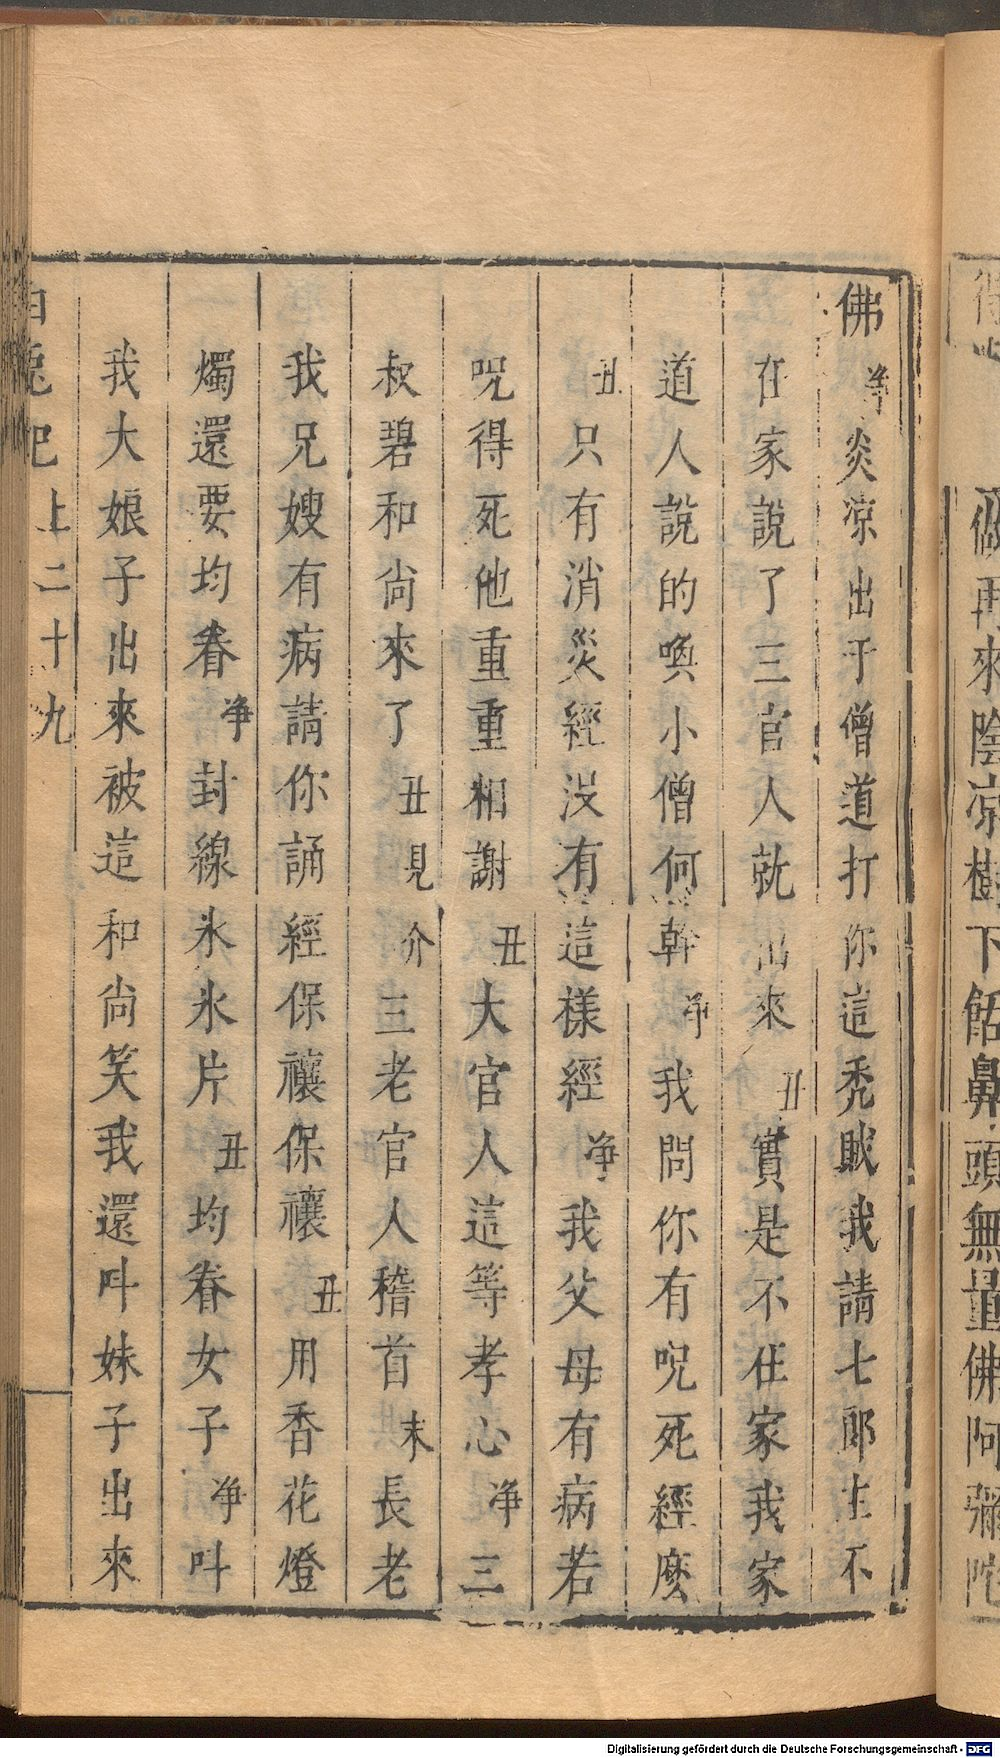 做再來陰凉樹下餂鼻頭無量佛阿彌陀
佛净炎凉出于僧道打你這秃賊我請七郎主不
在家說了三官人就出來丑實是不住家我家
道人說的喚小僧何幹净我問你有呪死經麽
丑只有消災經没有這樣經净我父母有病若
呪得死他重重相謝丑大官人這等孝心净三
叔碧和尚來了丑見介三老官人稽首末長老
我兄嫂有病請你誦經保禳保禳丑用香花燈
燭還要均眷净封線氷氷片丑均眷女子净呌
我大娘子出來被這和尚笑我還呌妹子出來
白兎記 上二十九
Digitalisierung gefördert durch die Deutsche Forschungsgemeinschaft - DFG